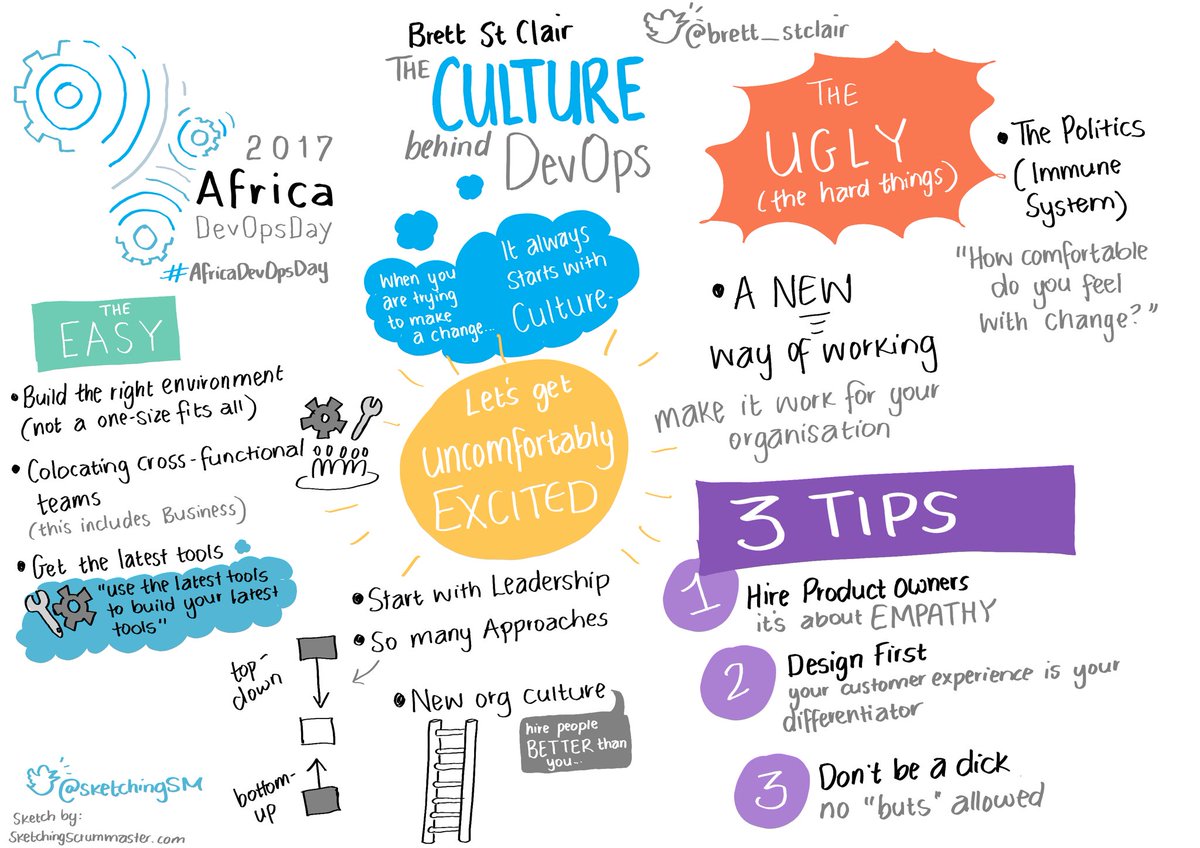 Brett St Clair
@brett_stclair
THE
CULTURE
behind
DevOps
2017
Africa
DevOpsDay
#AfricaDevOpsDay
When you
are trying
to make
a change...
It always
starts with
Culture.
Let's get
uncomfortably
EXCITED
THE
EASY
• Build the right environment
(not a one-size fits all)
• Colocating cross-functional
teams
(this includes Business)
• Get the latest tools
"use the latest tools
to build your latest
tools"
• Start with Leadership
• So many Approaches
top-
down
bottom-
up
• New org culture
hire people
BETTER than
you...
THE
UGLY
(the hard things)
• The Politics
(Immune
System)
"How comfortable
do you feel
with change?"
• A NEW
way of working
make it work for your
organisation
3 TIPS
1
Hire Product Owners
it's about EMPATHY
2
Design First
your customer experience is your
differentiator
3
Don't be a dick
no "buts" allowed
@sketchingSM
Sketch by:
SketchingScrummaster.com